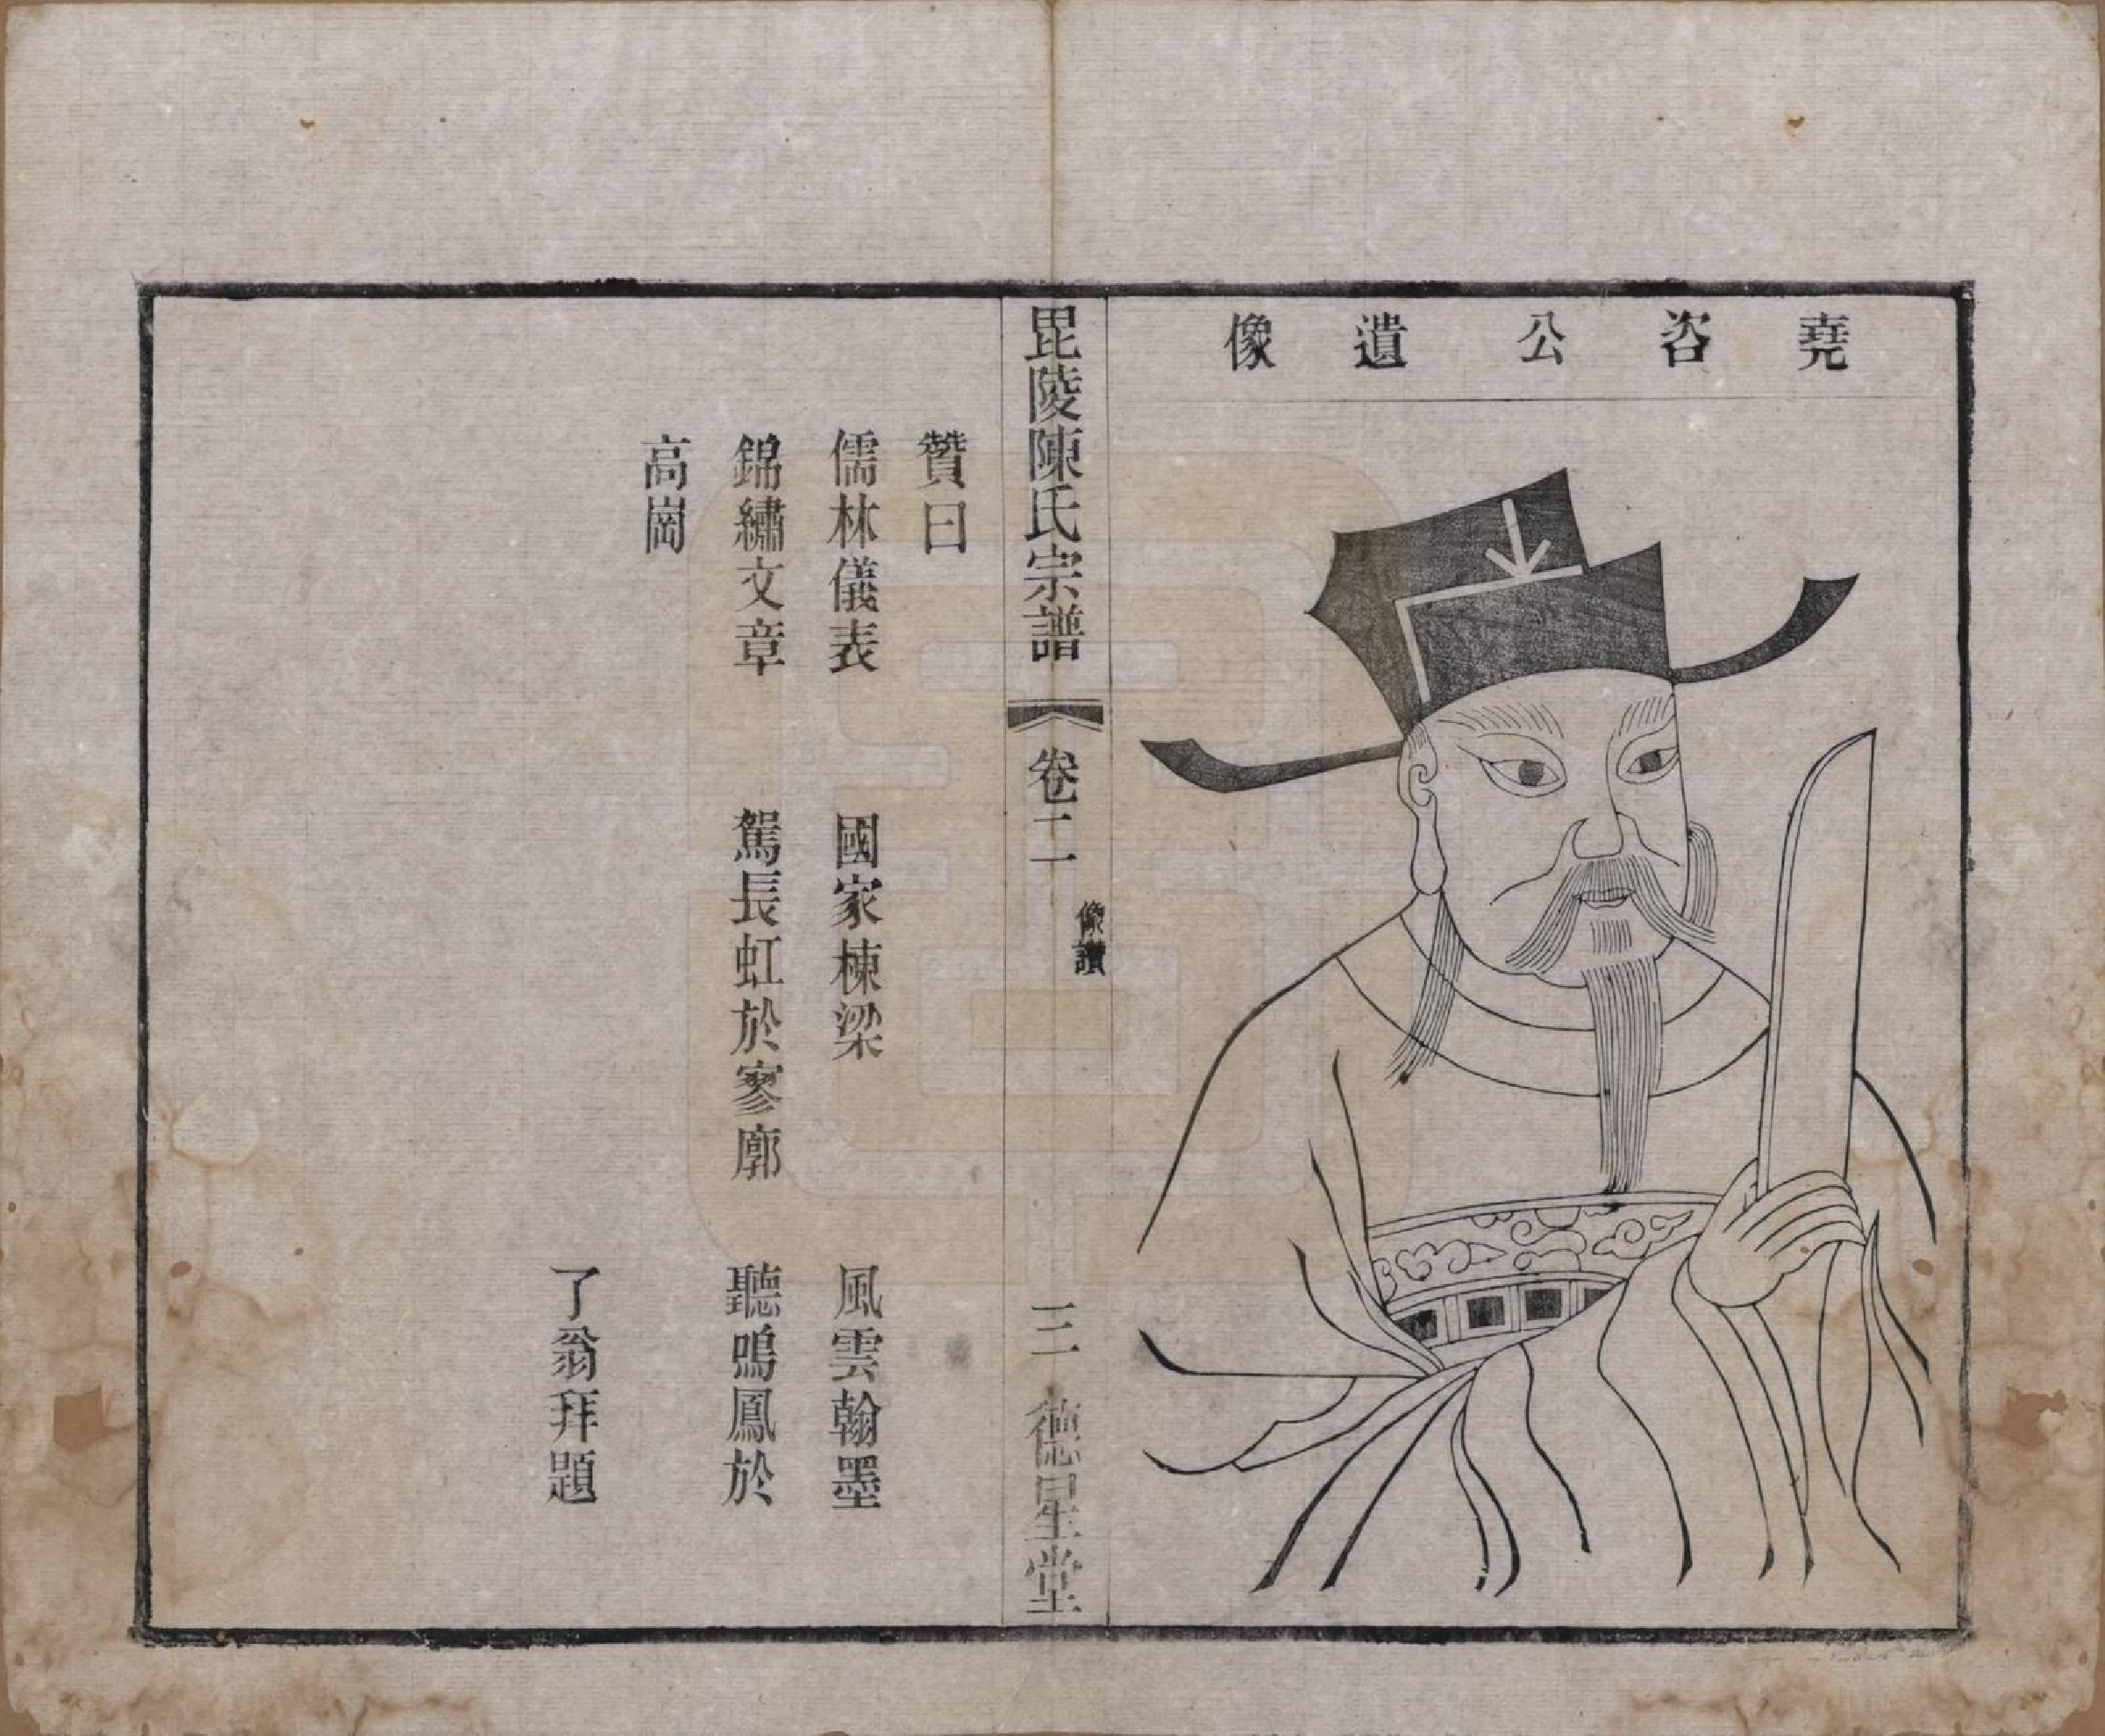 堯咨公遺像
毘陵陳氏宗譜 卷二 像讚 三 德星堂
贊曰
儒林儀表 國家棟梁 風雲翰墨
錦繡文章 駕長虹於寥廓 聽鳴鳳於
高崗
了翁拜題